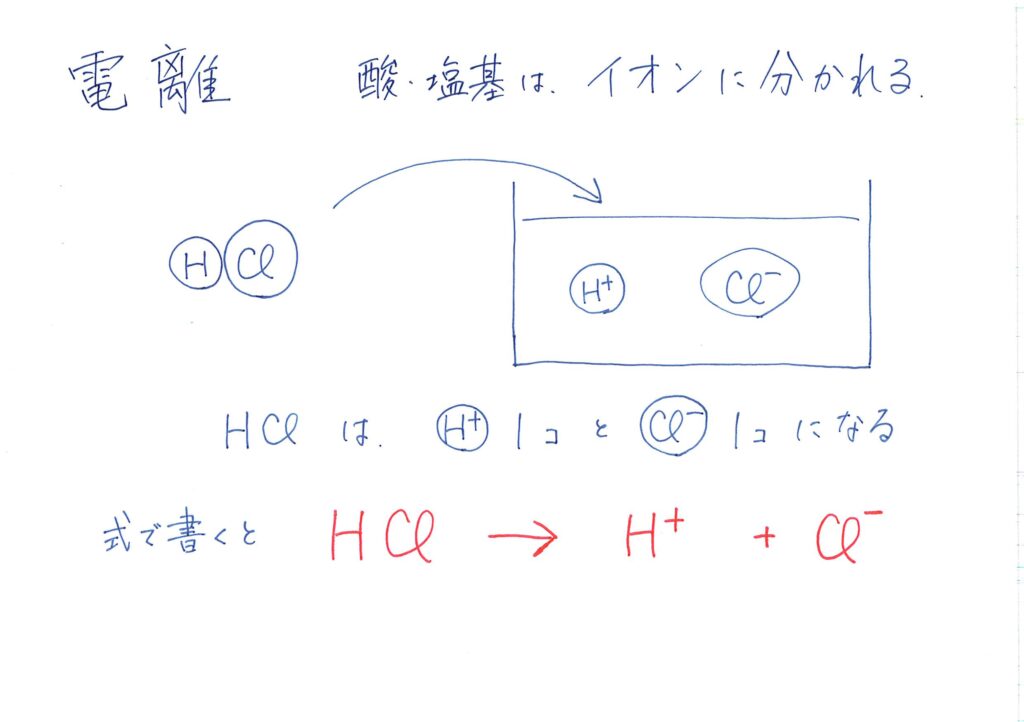 電離 酸・塩基は、イオンに分かれる.
HCl
H⁺ Cl⁻
HCl は、 H⁺ 1コ と Cl⁻ 1コ になる
式で書くと HCl → H⁺ + Cl⁻